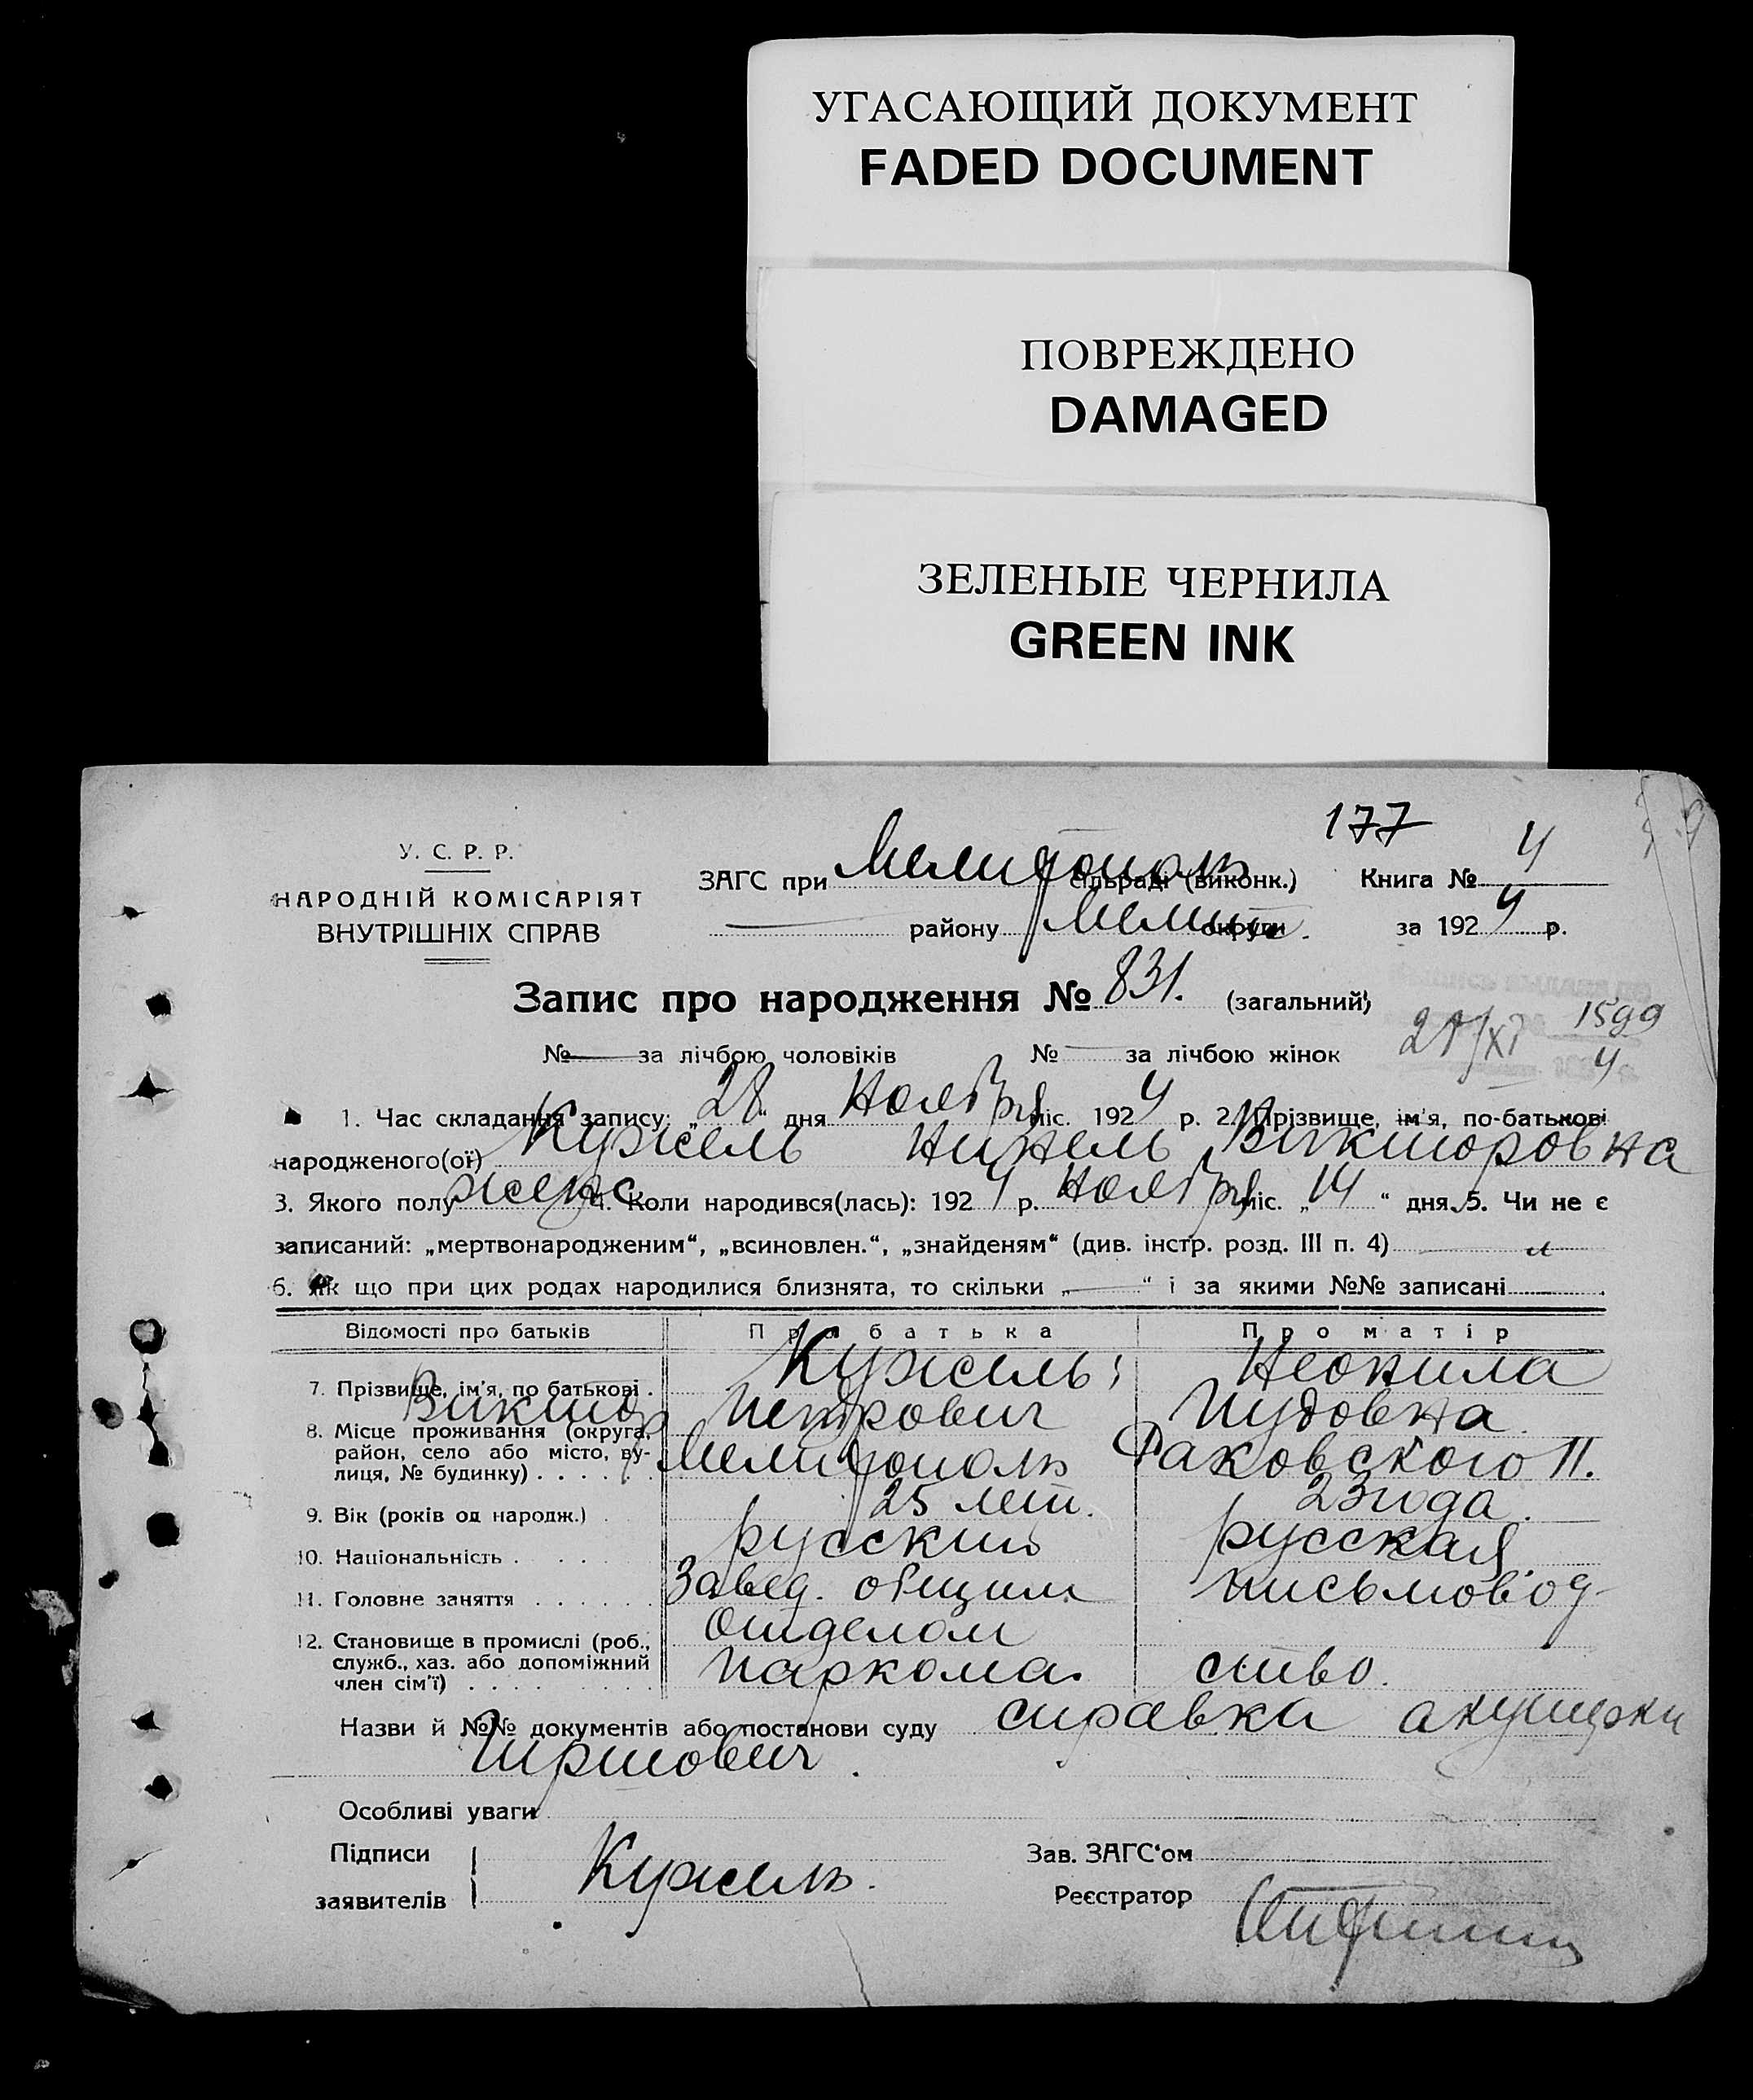 УГАСАЮЩИЙ ДОКУМЕНТ
FADED DOCUMENT
ПОВРЕЖДЕНО
DAMAGED
ЗЕЛЕНЫЕ ЧЕРНИЛА
GREEN INK
177
У. С. Р. Р.
НАРОДНІЙ КОМІСАРІЯТ
ВНУТРІШНІХ СПРАВ
ЗАГС при Мелитополь сільраді (виконк.) Книга № 4
району Мелит. округи за 1924 р.
Запис про народження № 831. (загальний)
1599
№ за лічбою чоловіків № за лічбою жінок 27/XI 4
1. Час складання запису: „28" дня Ноября міс. 1924 р. 2. Прізвище, ім'я, по-батькові
народженого(ої) Кужель Нинель Викторовна
3. Якого полу женс 4. Коли народився(лась): 1924 р. Ноября міс. „14" дня. 5. Чи не є
записаний: „мертвонародженим", „всиновлен.", „знайденям" (див. інстр. розд. III п. 4)
6. Як що при цих родах народилися близнята, то скільки „—" і за якими №№ записані
Відомості про батьків Про батька Про матір
7. Прізвище, ім'я, по батькові . Кужель Неонила
Виктор Петрович
8. Місце проживання (округа, район, село або місто, вулиця, № будинку) . . . . . Мелитополь Раковского 11.
9. Вік (років од народж.) . 25 лет. 23 года.
10. Національність . . . . русский русская
11. Головне заняття . . . . . . Завед. общим письмовод-
отделом
12. Становище в промислі (роб., служб., хаз. або допоміжний член сім'ї) . . . . . . . . паркома. ство.
Назви й №№ документів або постанови суду справка акушерки
Особливі уваги
Підписи
заявителів Кужель.
Зав. ЗАГС'ом
Реєстратор